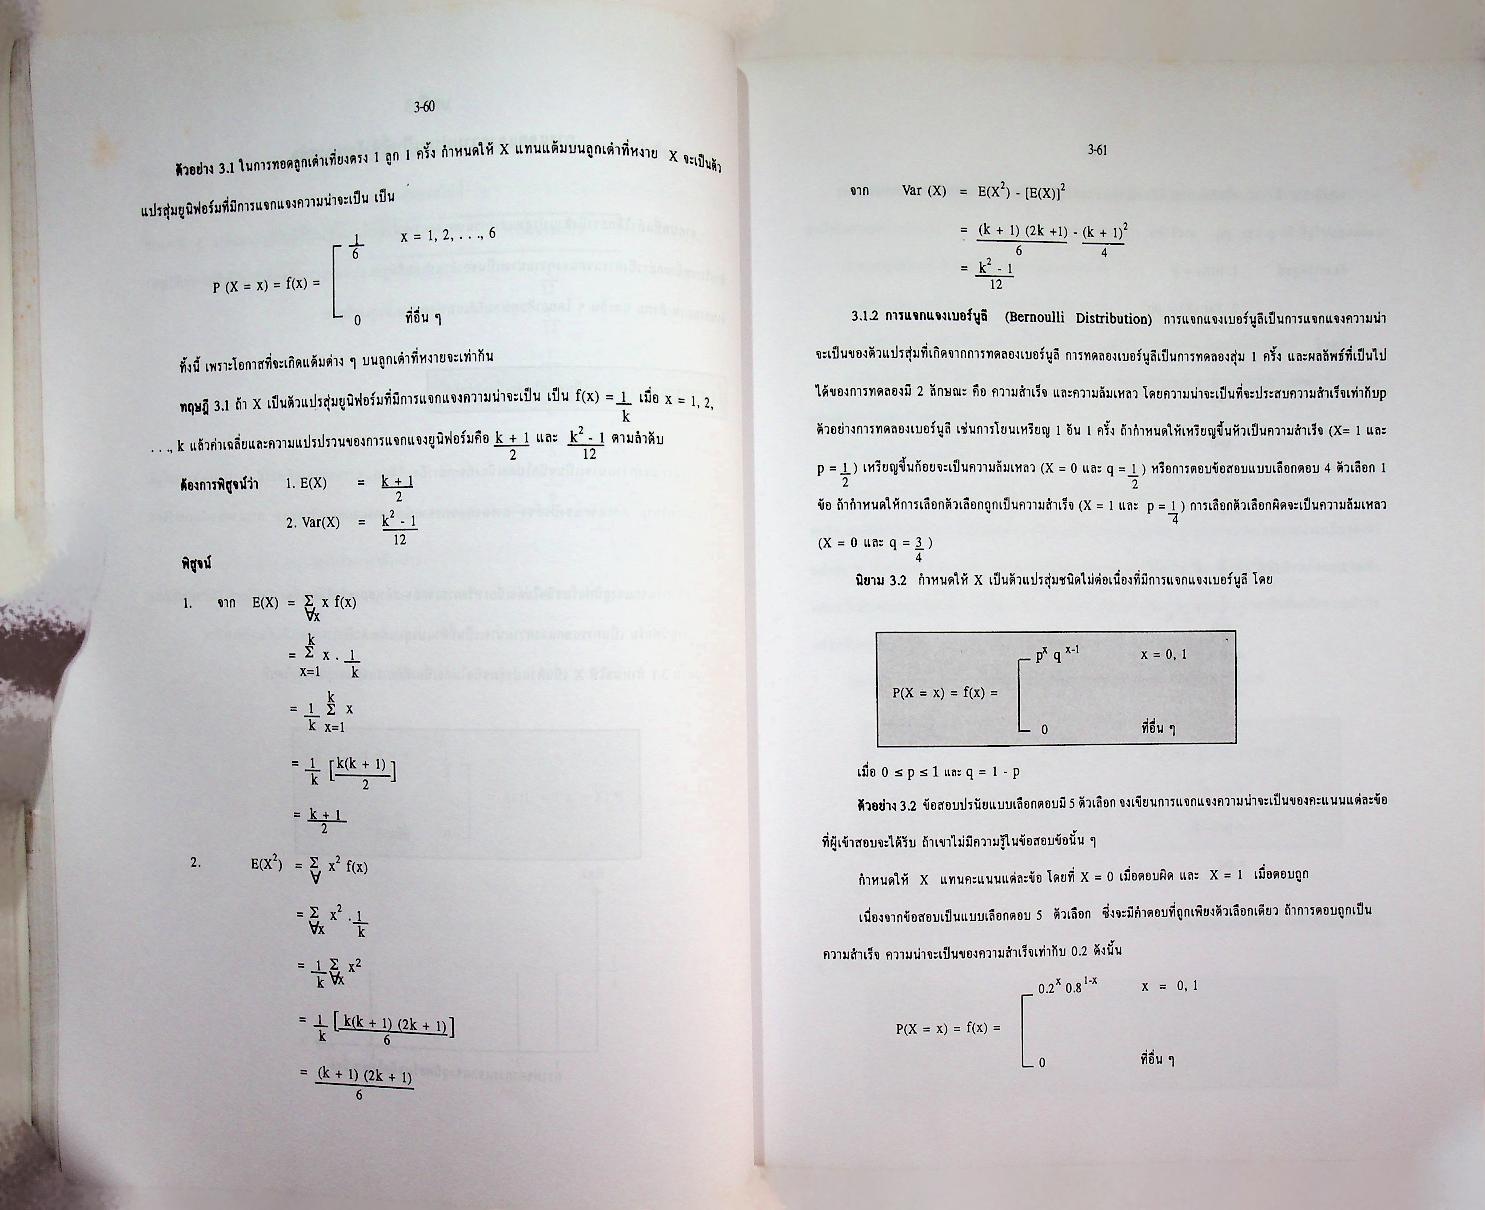 3-60
ตัวอย่าง 3.1 ในการทอดลูกเต๋าเที่ยงตรง 1 ลูก 1 ครั้ง กำหนดให้ X แทนแต้มบนลูกเต๋าที่หงาย X จะเป็นตัว
แปรสุ่มยูนิฟอร์มที่มีการแจกแจงความน่าจะเป็น เป็น
P (X = x) = f(x) = [ 1/6 x = 1, 2, . . ., 6
0 ที่อื่น ๆ
ทั้งนี้ เพราะโอกาสที่จะเกิดแต้มต่าง ๆ บนลูกเต๋าที่หงายจะเท่ากัน
ทฤษฎี 3.1 ถ้า X เป็นตัวแปรสุ่มยูนิฟอร์มที่มีการแจกแจงความน่าจะเป็น เป็น f(x) = 1/k เมื่อ x = 1, 2,
. . ., k แล้วค่าเฉลี่ยและความแปรปรวนของการแจกแจงยูนิฟอร์มคือ (k + 1)/2 และ (k² - 1)/12 ตามลำดับ
ต้องการพิสูจน์ว่า 1. E(X) = (k + 1)/2
2. Var(X) = (k² - 1)/12
พิสูจน์
1. จาก E(X) = Σ∀x x f(x)
= Σ(x=1 → k) x . 1/k
= 1/k Σ(x=1 → k) x
= 1/k [k(k + 1)/2]
= (k + 1)/2
2. E(X²) = Σ∀ x² f(x)
= Σ∀x x² . 1/k
= 1/k Σ∀x x²
= 1/k [k(k + 1) (2k + 1)/6]
= (k + 1) (2k + 1)/6
3-61
จาก Var (X) = E(X²) - [E(X)]²
= (k + 1) (2k +1)/6 - (k + 1)²/4
= (k² - 1)/12
3.1.2 การแจกแจงเบอร์นูลี (Bernoulli Distribution) การแจกแจงเบอร์นูลีเป็นการแจกแจงความน่า
จะเป็นของตัวแปรสุ่มที่เกิดจากการทดลองเบอร์นูลี การทดลองเบอร์นูลีเป็นการทดลองสุ่ม 1 ครั้ง และผลลัพธ์ที่เป็นไป
ได้ของการทดลองมี 2 ลักษณะ คือ ความสำเร็จ และความล้มเหลว โดยความน่าจะเป็นที่จะประสบความสำเร็จเท่ากับp
ตัวอย่างการทดลองเบอร์นูลี เช่นการโยนเหรียญ 1 อัน 1 ครั้ง ถ้ากำหนดให้เหรียญขึ้นหัวเป็นความสำเร็จ (X= 1 และ
p = 1/2 ) เหรียญขึ้นก้อยจะเป็นความล้มเหลว (X = 0 และ q = 1/2 ) หรือการตอบข้อสอบแบบเลือกตอบ 4 ตัวเลือก 1
ข้อ ถ้ากำหนดให้การเลือกตัวเลือกถูกเป็นความสำเร็จ (X = 1 และ p = 1/4 ) การเลือกตัวเลือกผิดจะเป็นความล้มเหลว
(X = 0 และ q = 3/4 )
นิยาม 3.2 กำหนดให้ X เป็นตัวแปรสุ่มชนิดไม่ต่อเนื่องที่มีการแจกแจงเบอร์นูลี โดย
P(X = x) = f(x) = [ pˣ qˣ⁻¹ x = 0, 1
0 ที่อื่น ๆ
เมื่อ 0 ≤ p ≤ 1 และ q = 1 - p
ตัวอย่าง 3.2 ข้อสอบปรนัยแบบเลือกตอบมี 5 ตัวเลือก จงเขียนการแจกแจงความน่าจะเป็นของคะแนนแต่ละข้อ
ที่ผู้เข้าสอบจะได้รับ ถ้าเขาไม่มีความรู้ในข้อสอบข้อนั้น ๆ
กำหนดให้ X แทนคะแนนแต่ละข้อ โดยที่ X = 0 เมื่อตอบผิด และ X = 1 เมื่อตอบถูก
เนื่องจากข้อสอบเป็นแบบเลือกตอบ 5 ตัวเลือก ซึ่งจะมีคำตอบที่ถูกเพียงตัวเลือกเดียว ถ้าการตอบถูกเป็น
ความสำเร็จ ความน่าจะเป็นของความสำเร็จเท่ากับ 0.2 ดังนั้น
P(X = x) = f(x) = [ 0.2ˣ 0.8¹⁻ˣ x = 0, 1
0 ที่อื่น ๆ